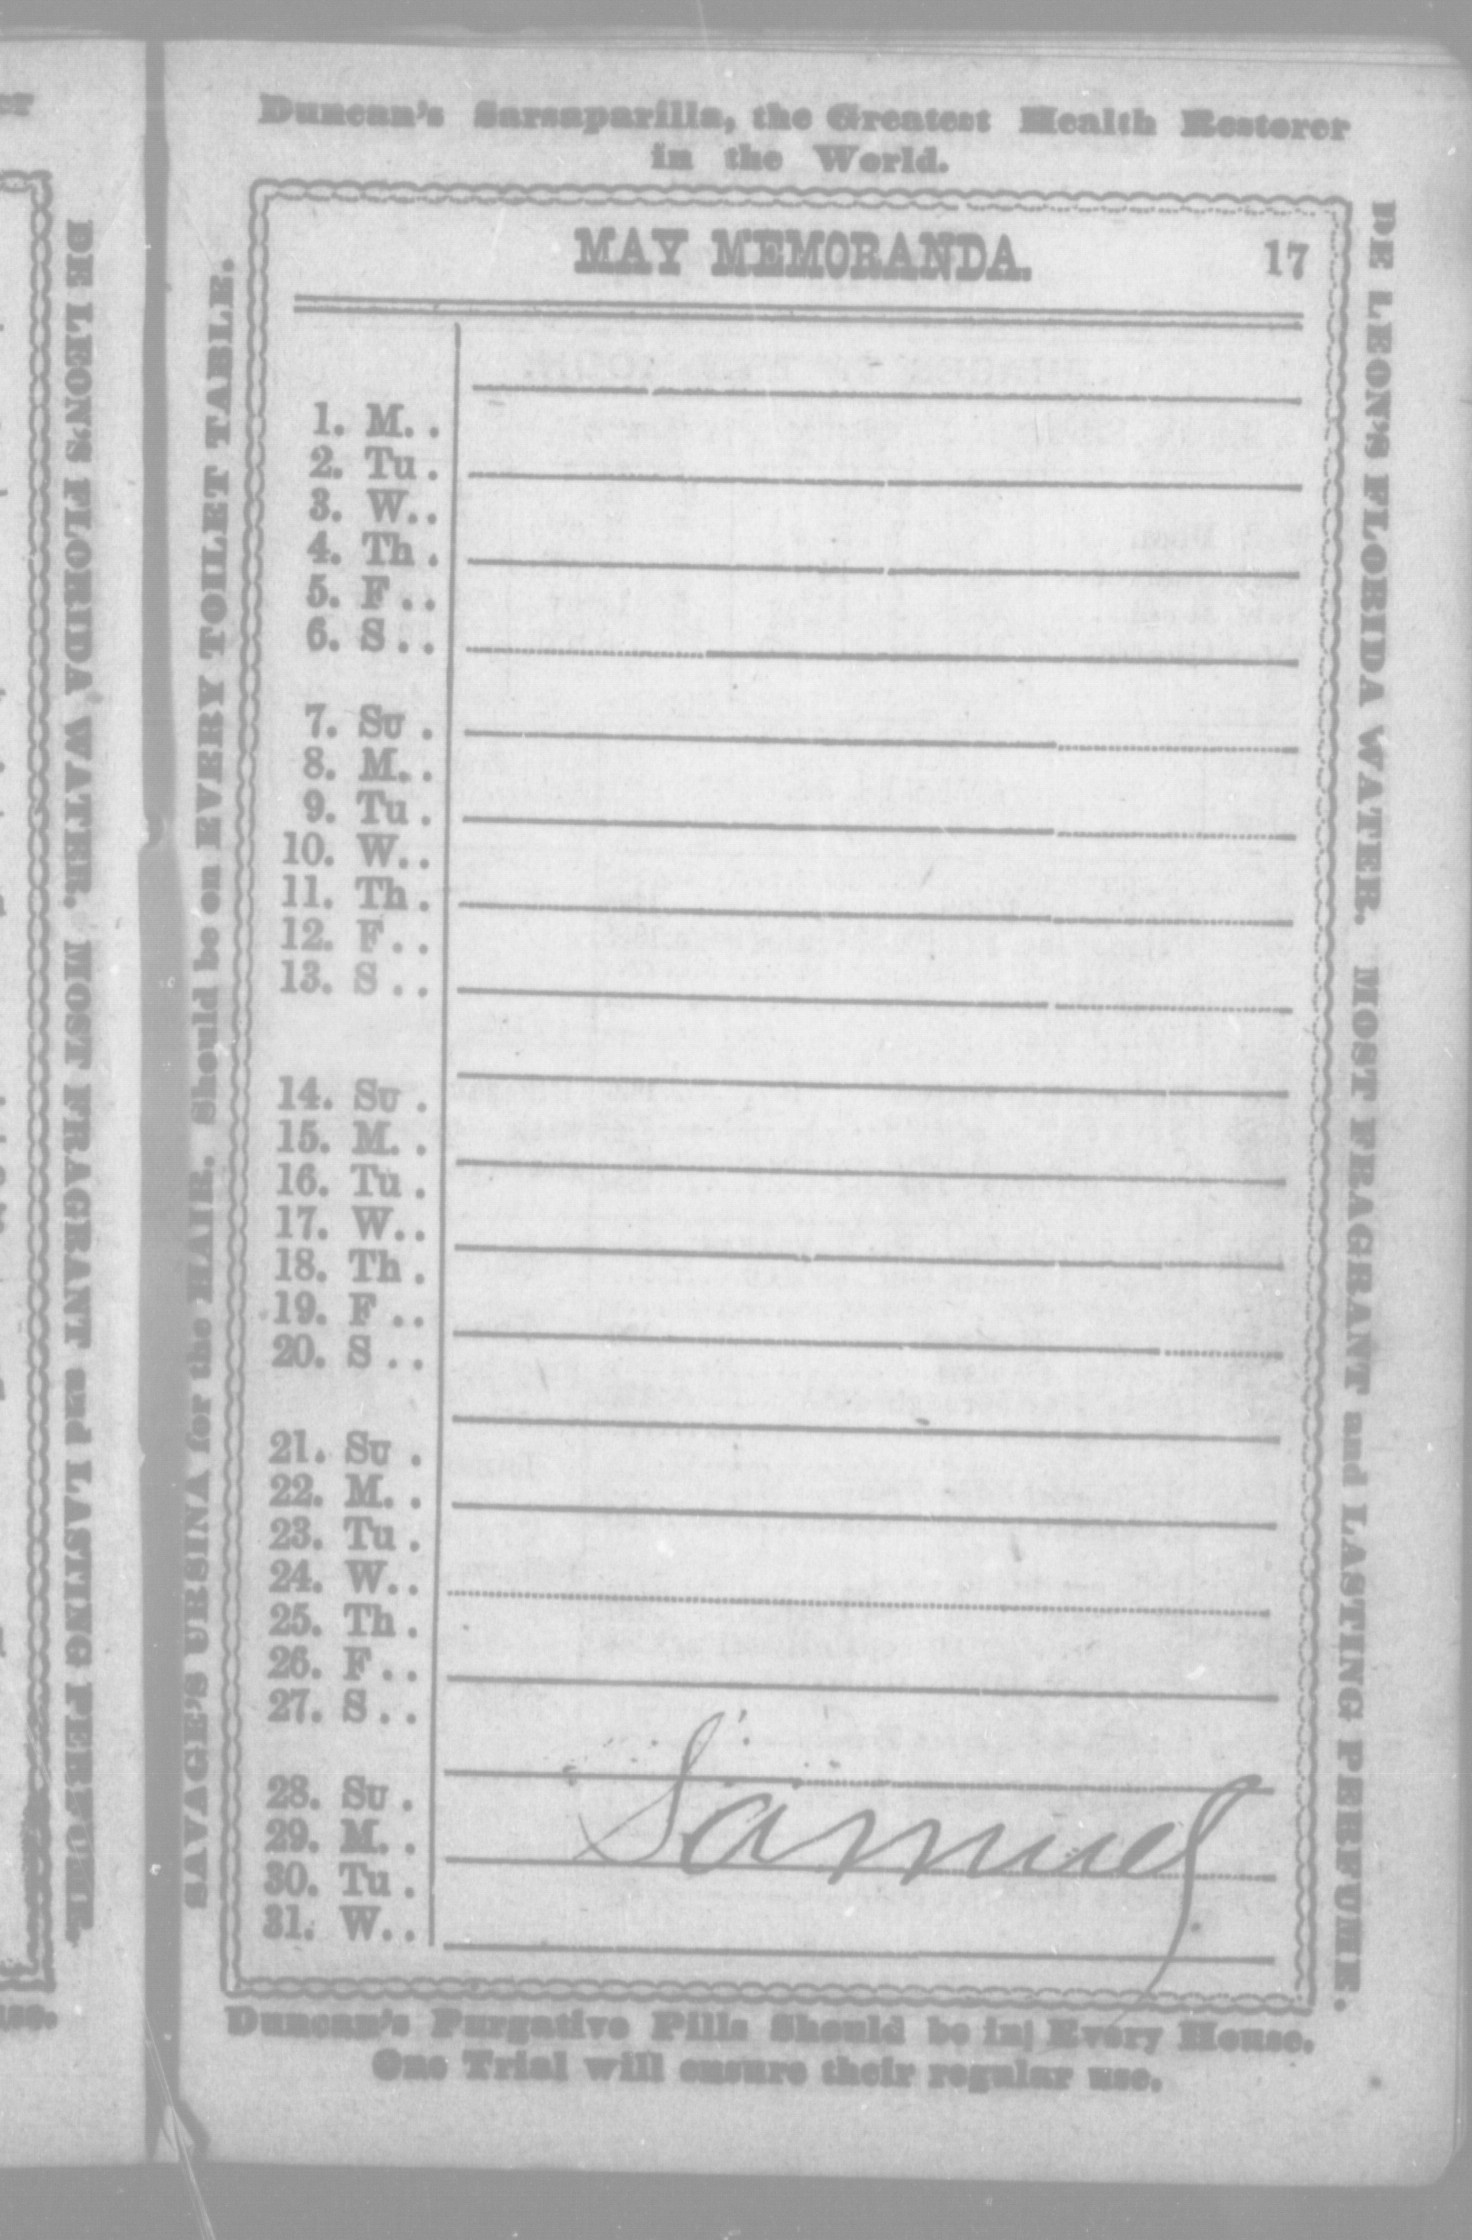 Duncan's Sarsaparilla, the Greatest Health Restorer
in the World.
MAY MEMORANDA. 17
1. M. .
2. Tu .
3. W. .
4. Th .
5. F . .
6. S . .
7. Su .
8. M. .
9. Tu .
10. W. .
11. Th .
12. F . .
13. S . .
14. Su .
15. M. .
16. Tu .
17. W. .
18. Th .
19. F . .
20. S . .
21. Su .
22. M. .
23. Tu .
24. W. .
25. Th .
26. F . .
27. S . .
28. Su .
29. M. .
30. Tu .
31. W. .
Samuel
Duncan's Purgative Pills Should be in Every House.
One Trial will ensure their regular use.
SAVAGE'S URSINA for the HAIR. Should be on EVERY TOILET TABLE.
DE LEON'S FLORIDA WATER. MOST FRAGRANT and LASTING PERFUME.
DE LEON'S FLORIDA WATER. MOST FRAGRANT and LASTING PERFUME.